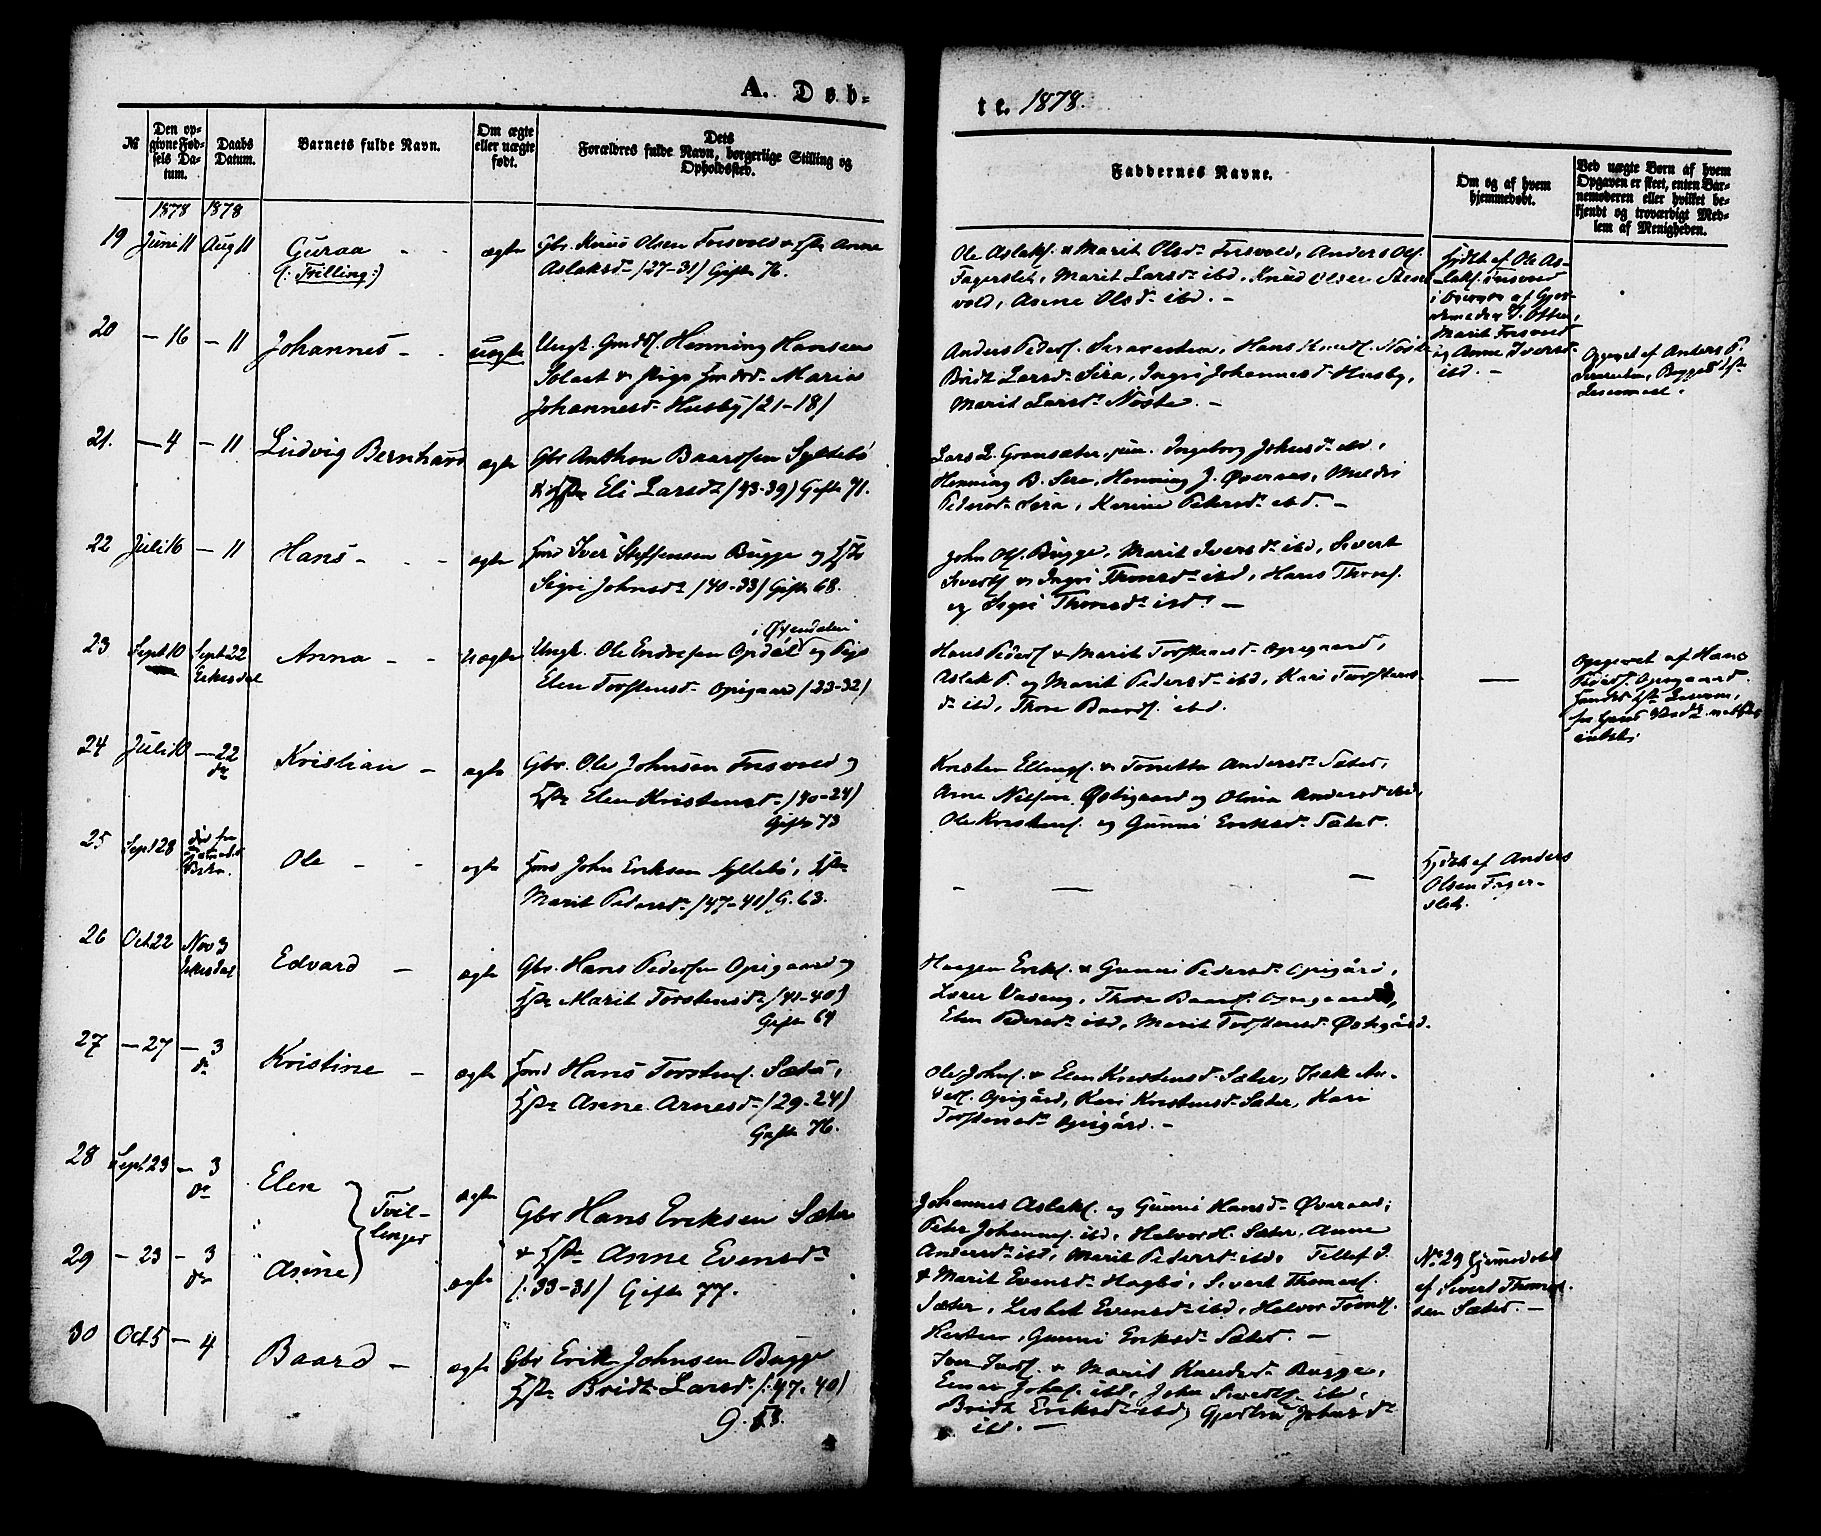 A. Døb-
te. 1878.
№
Den op-
givne Fød-
sels Da-
tum.
Daabs
Datum.
Barnets fulde Navn.
Om ægte
eller uægte
født.
Dets
Forældres fulde Navn, borgerlige Stilling og
Opholdssted.
Faddernes Navne.
Om og af hvem
hjemmedøbt.
Ved uægte Børn af hvem
Opgaven er skeet, enten Bar-
nemoderen eller hvilket be-
kjendt og troværdigt Med-
lem af Menigheden.
1878 1878
19 Juni 11 Aug 11 Guraa - - ægte
(: Trilling :)
Gbr. Knud Olsen Frisvold & Hst. Anne
Aslaksdr (27-31) Gift 76.
Ole Aslaks. & Marit Olsdr Frisvold, Anders Ols.
Fagerslet, Marit Larsdr ibd, Knud Olsen
vold, Anne Olsdr ibd. -
Hjdbt af Ole As-
laks. Frisvold
Marit Frisvold
og Anne Iversdr
ibd. -
20 - 16 - 11 Johannes - - uægte
Ungk. Henning Hansen
& Pige Maria
Johannesdr Husby (21-18)
Anders Peders. Hans Knuds. Nøste
Bridt Larsdr Sira, Ingri Johannesdr Husby,
Marit Larsdr Nøste. -
Opgivet af Anders P.
21. - 4 - 11 Ludvig Bernhard ægte
Gbr Anthon Baardsen Syltebø
& Hst Eli Larsdr (43-39) Gift 71.
Lars L. Gransæter, jun. Ingeborg Johnsdr ibd,
Henning B. Sira, Henning J. Øveraas, Meldri
Pedersdr Sira, Karine Petersdr ibd. -
22 Juli 16 - 11 Hans - - - ægte
Iver Steffensen Bugge og Hst
Sigri Johnsdr (40-33) Gift 68.
John Ols. Bugge, Marit Iversdr ibd, Sivert
Siverts. & Ingri Thoresdr ibd, Hans Thores.
og Sigri Thoresdr ibd. -
23 Sept 10 Sept 22
Eikesdal Anna - - Uægte
i Øxendalen
Ungk. Ole Endresen Opdøl og Pige
Elen Torstensdr Opigaard (23-32)
Hans Peders. & Marit Torstensdr Opigaard,
Aslak P. og Marit Pedersdr ibd, Kari Torstens-
dr ibd, Thore Baards. ibd.
-
Opgivet af Hans
Peders. Opigaard
24 Juli 10 - 22
do Kristian - ægte
Gbr. Ole Johnsen Frisvold og
Hst Elen Kristensdr (40-24)
Gift 73
Kristen Ellings. & Tonetta Andersdr Sæter,
Arne Nilsen Østigaard og Olina Andersdr ibd,
Ole Kristens. og Gunni Eriksdr Sæter.
25 Sept 28 Ole - - ægte
John Eriksen Syltebø, Hst
Marit Pedersdr (47-41) G. 63.
- - -
Hjdbt af Anders
Olsen Fager-
slet.
26 Oct 22 Nov 3
Eikesdal Edvard - ægte
Gbr. Hans Pedersen Opigaard og
Hst Marit Torstensdr (41-40)
Gift 64
Haagen Eriks. & Gunni Pedersdr Opigård,
Vaseng, Thore Baards. Opigaard,
Elen Pedersdr ibd, Marit Torstensdr Østigård.
27 - 27 - 3
do Kristine - ægte
Hans Torstens. Sæter,
Hst Anne Arnesdr (29-24)
Gift 76.
Ole Johns. & Elen Kristensdr Sæter, Isak An-
ders. Opigård, Kari Kristensdr Sæter, Kari
Torstensdr Opigård. -
28 Sept 23 - 3
do Elen ægte
Tvil-
linger
29 - 23 - 3
do Anne ægte
Gbr Hans Eriksen Sæter
& Hst Anne Evensdr
(: 33-31) Gift 77.
Johannes Aslaks. og Gunni Hansdr Øveraas,
Peter Johannes. ibd, Halvor H. Sæter, Anne
Andersdr ibd, Marit Pedersdr ibd, Tellef J.
& Marit Evensdr Hagbø, Sivert Thomas.
Sæter, Lisbet Evensdr ibd, Halvor
Gunni Eriksdr Sæter. -
No 29 hjemmedøbt
af Sivert Thomas-
sen Sæter. -
30 Oct 5 - 4 Baard - ægte
Gbr Erik Johnsen Bugge
Hst Bridt Larsdr (: 47-40)
G. 53.
Iver Ivers. & Marit Knudsdr Bugge,
Einar Johns. ibd, John Siverts. ibd,
Bridt Eriksdr ibd, Gjertru Johnsdr
ibd. -